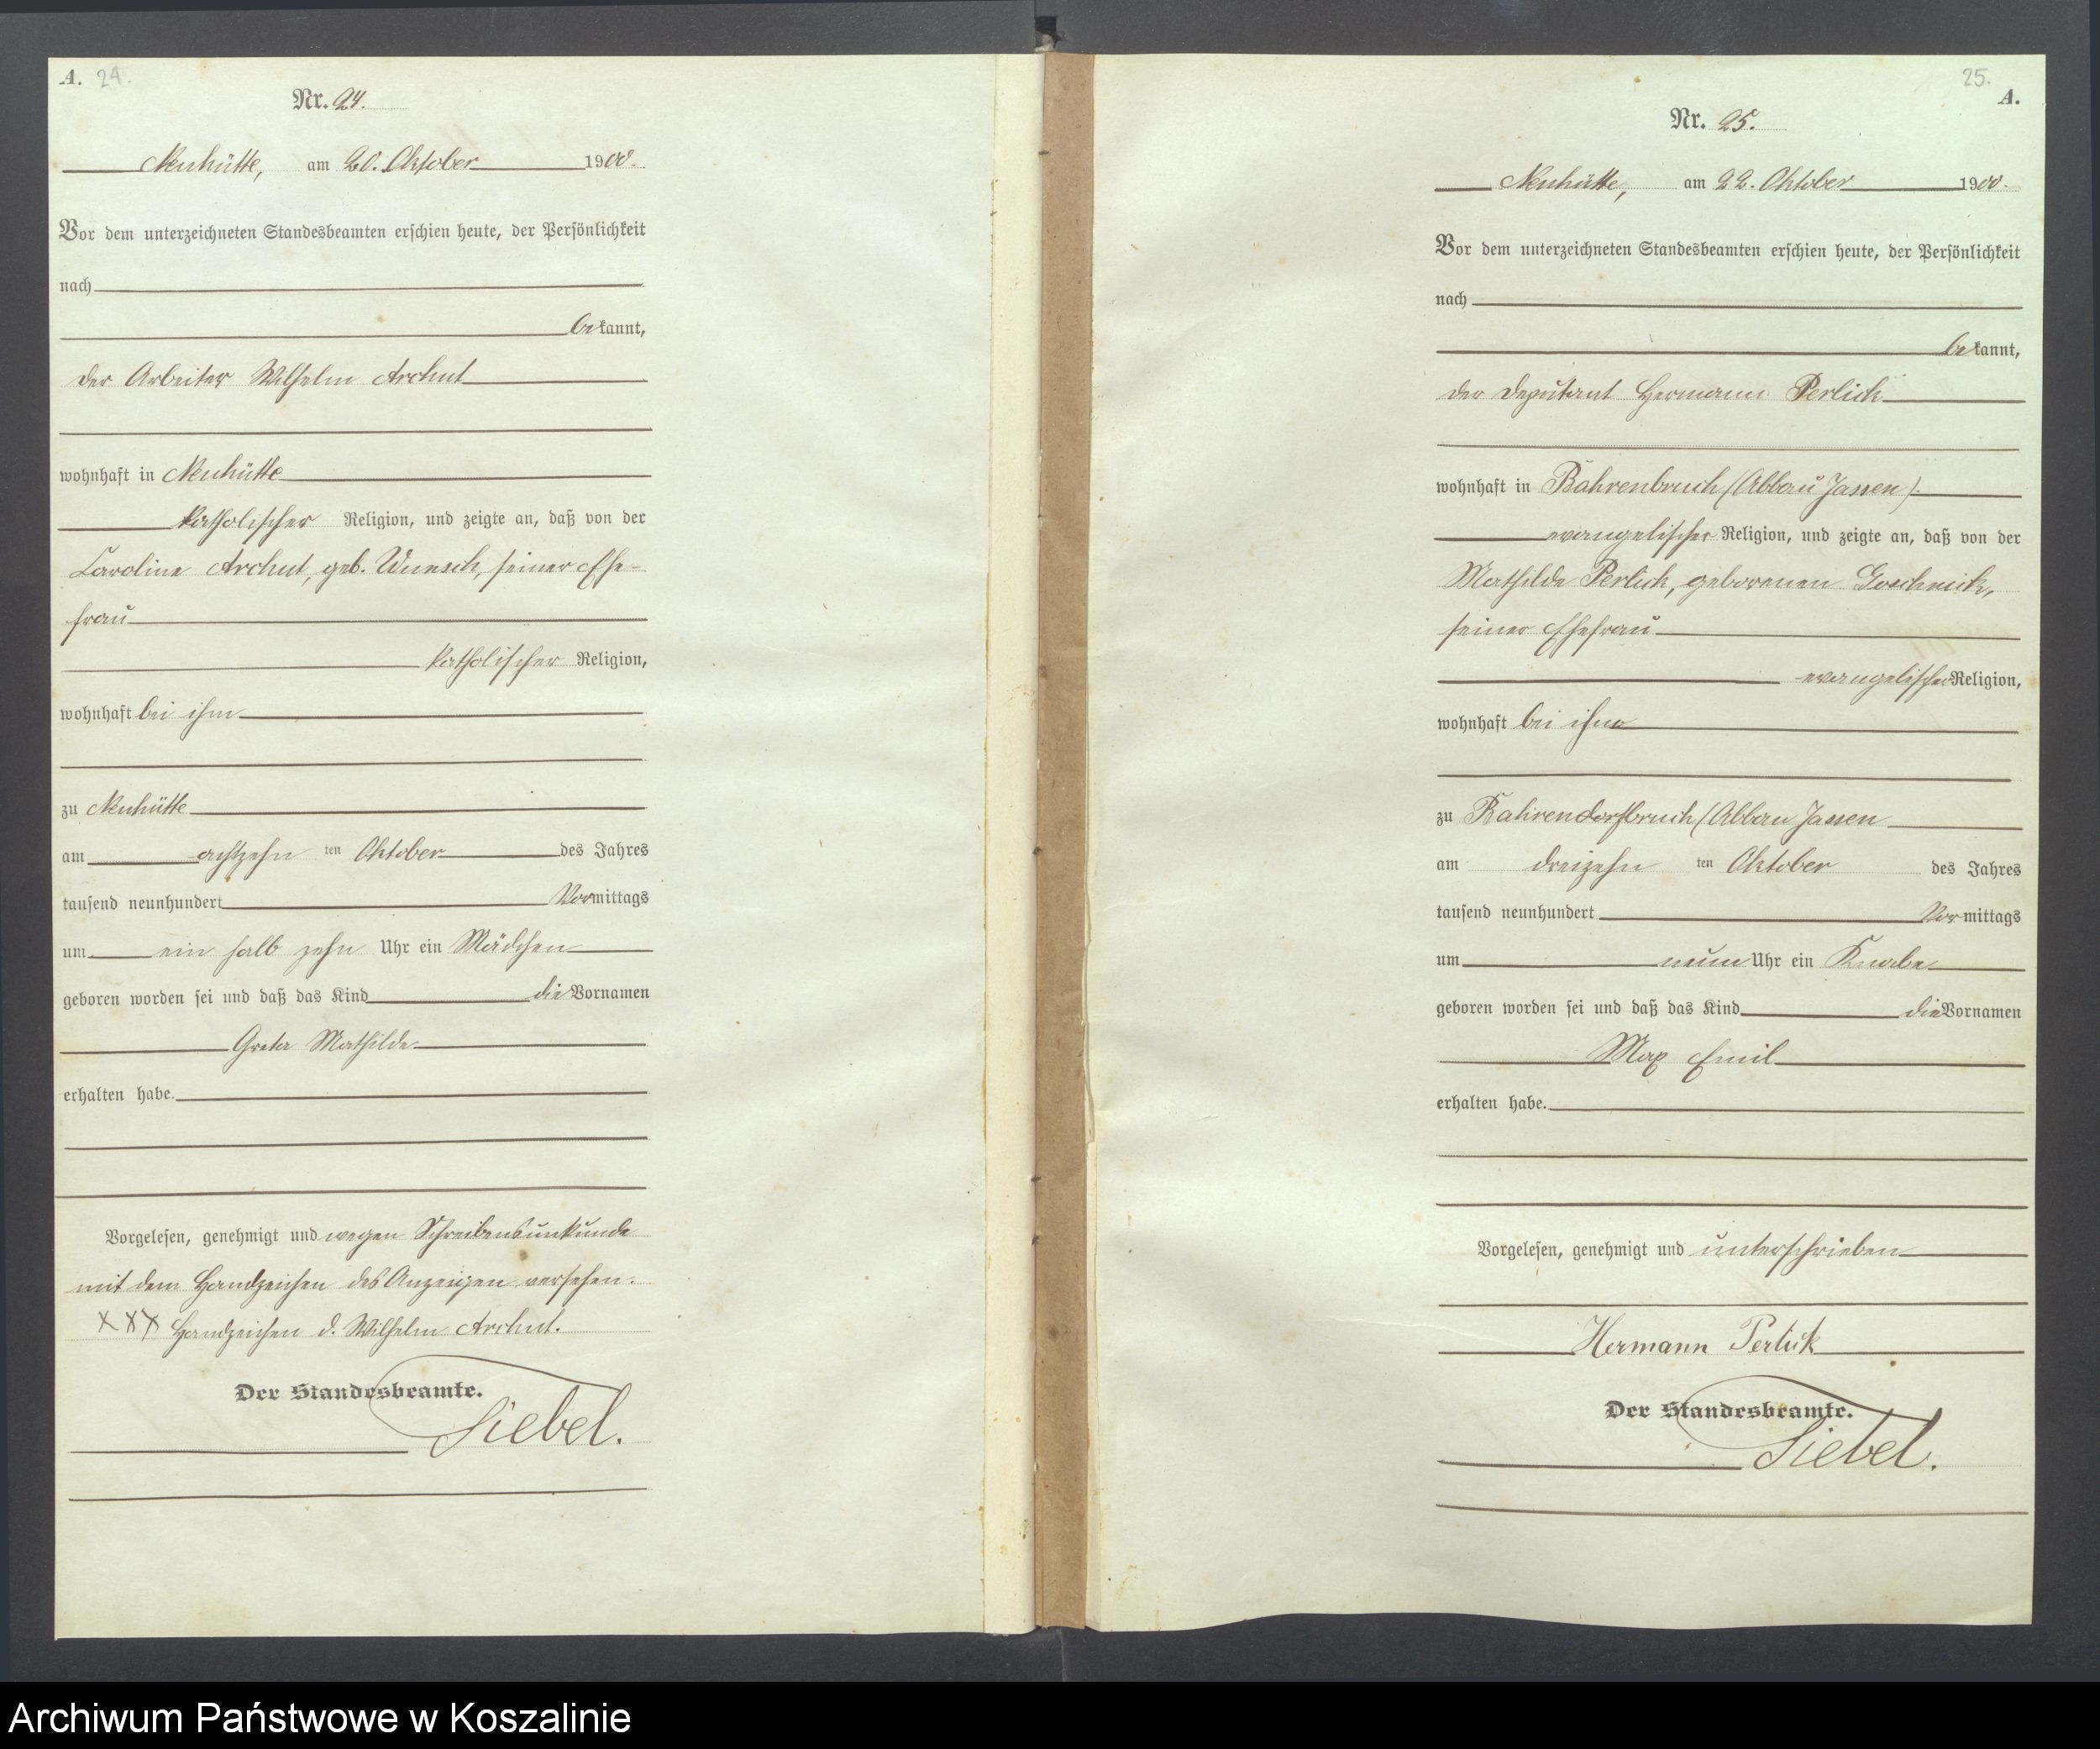 A. 24.
Nr. 24.
Neuhütte, am 20. Oktober 1900.
Vor dem unterzeichneten Standesbeamten erschien heute, der Persönlichkeit
nach
bekannt,
der Arbeiter Wilhelm Archut
wohnhaft in Neuhütte
katholischer Religion, und zeigte an, daß von der
Caroline Archut, geb. Wunsch, seiner Ehe-
frau
katholischer Religion,
wohnhaft bei ihm
zu Neuhütte
am achtzehn ten Oktober des Jahres
tausend neunhundert Vormittags
um ein halb zehn Uhr ein Mädchen
geboren worden sei und daß das Kind die Vornamen
Greta Mathilde
erhalten habe.
Vorgelesen, genehmigt und wegen Schreibensunkunde
mit dem Handzeichen des Anzeigen versehen.
XXX Handzeichen d. Wilhelm Archut.
Der Standesbeamte.
Siebel.
25.
A.
Nr. 25.
Neuhütte, am 22. Oktober 1900.
Vor dem unterzeichneten Standesbeamten erschien heute, der Persönlichkeit
nach
bekannt,
der Deputant Hermann Perlick
wohnhaft in Bahrenbruch (Abbau Jassen).
evangelischer Religion, und zeigte an, daß von der
Mathilde Perlick, geborenen Goschnick,
seiner Ehefrau
evangelischer Religion,
wohnhaft bei ihm
zu Bahrendorfbruch (Abbau Jassen
am dreizehn ten Oktober des Jahres
tausend neunhundert Vormittags
um neun Uhr ein Knabe
geboren worden sei und daß das Kind die Vornamen
Max Emil
erhalten habe.
Vorgelesen, genehmigt und unterschrieben
Hermann Perlick
Der Standesbeamte.
Siebel.
Archiwum Państwowe w Koszalinie